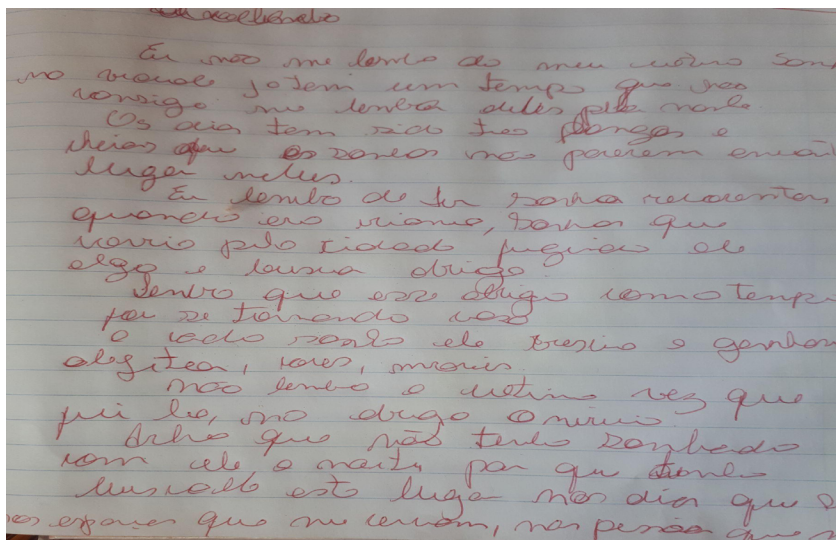 Eu não me lembro do meu ultimo son
no verdade ja tem um tempo que nao
consigo me lembra deles pela noite.
Os dia tem sido tao longos e
cheios que os sonhos nao parecem
lugar neles.
Eu lembo de ter sonho recorrentes
quando era criança, sonhos que
corria pela cidade fugindo de
algo e buscava abrigo.
Lembro que esse abrigo com o tempo
foi se tornando casa
a cada sonho ele crescia e ganhava
objetos, cores, moveis
não lembro a ultima vez que
fui la, no abrigo onirico.
Acho que não tenho sonhado
com ele a noite por que tenho
buscado este lugar nos dia que
nos espaços que me cercam, nas pessoa que